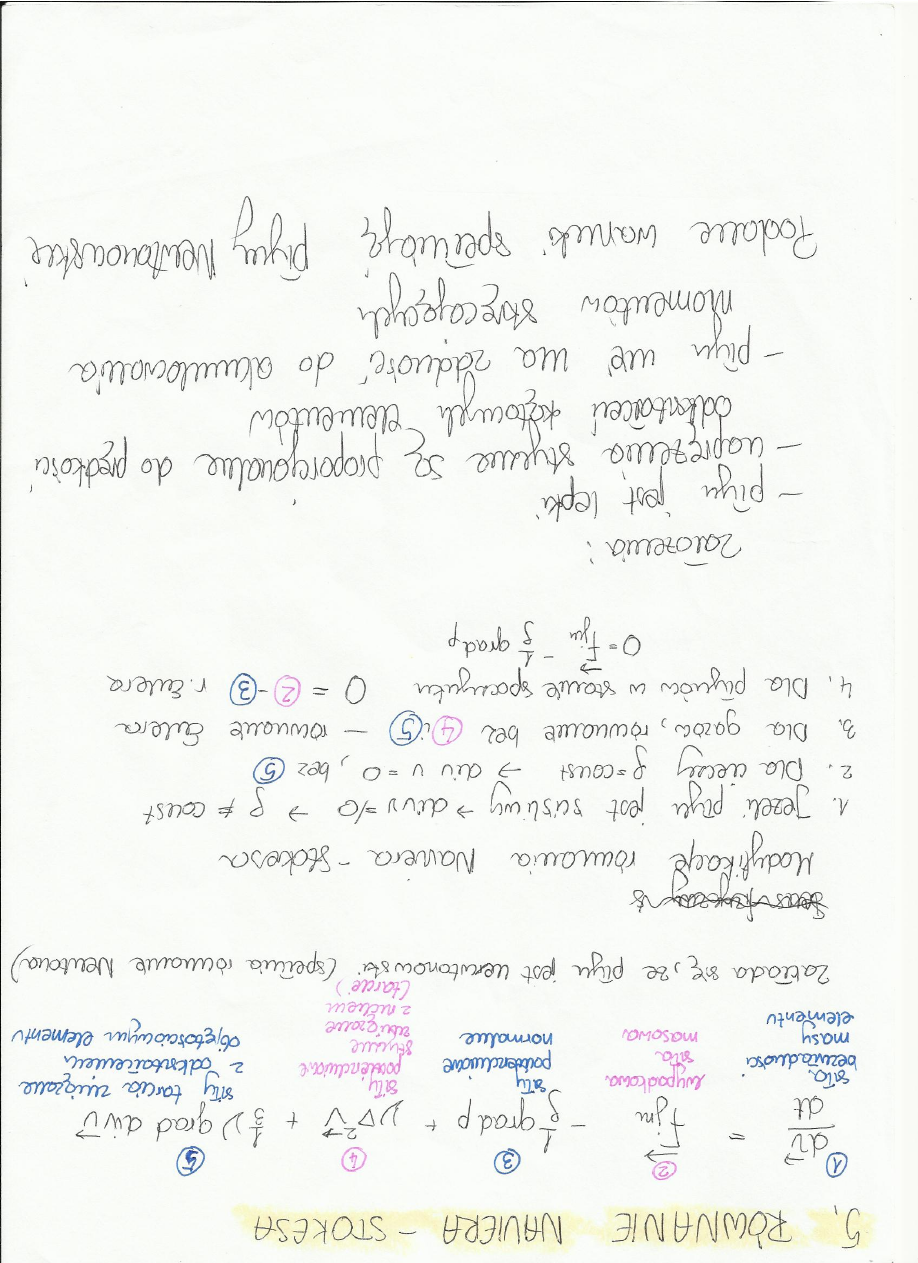 5. RÓWNANIE NAVIERA - STOKESA
① ② ③ ④ ⑤
dv⃗/dt = F⃗jm - 1/ρ grad p + ν∇²v⃗ + 1/3 ν grad div v⃗
siła bezwładności masy elementu
wypadkowa siła masowa
siły powierzchniowe normalne
siły powierzchniowe styczne związane z ruchem (tarcie)
siły tarcia związane z odkształceniem objętościowym elementu
Zakłada się, że płyn jest newtonowski (spełnia równanie Newtona)
Modyfikacje równania Naviera - Stokesa
1. Jeżeli płyn jest ściśliwy → div v ≠ 0 → ρ ≠ const
2. Dla cieczy ρ = const → div v = 0, bez ⑤
3. Dla gazów, równanie bez ④ i ⑤ - równanie Eulera
4. Dla płynów w stanie spoczynku 0 = ② - ③ r. Eulera
0 = F⃗jm - 1/ρ grad p
Założenia:
- płyn jest lepki
- naprężenia styczne są proporcjonalne do prędkości
odkształceń kątowych elementów
- płyn nie ma zdolność do akumulowania
momentów skręcających
Podane warunki spełniają płyny Newtonowskie